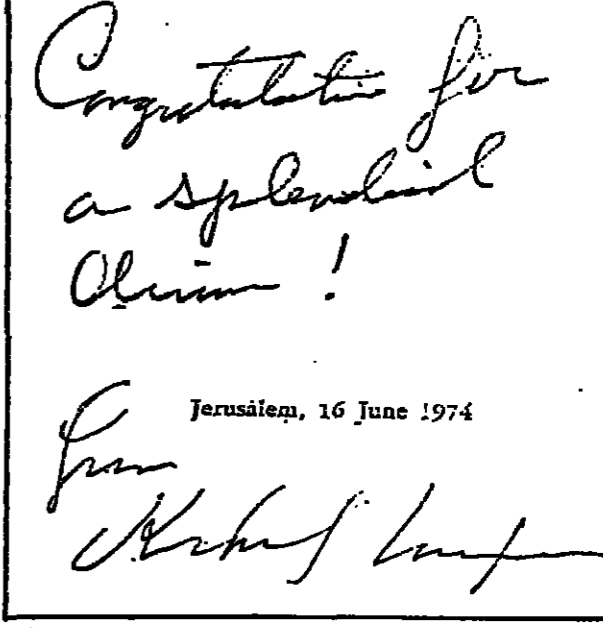 Congratulation for
a splendid
Dinner !
Jerusalem, 16 June 1974
From